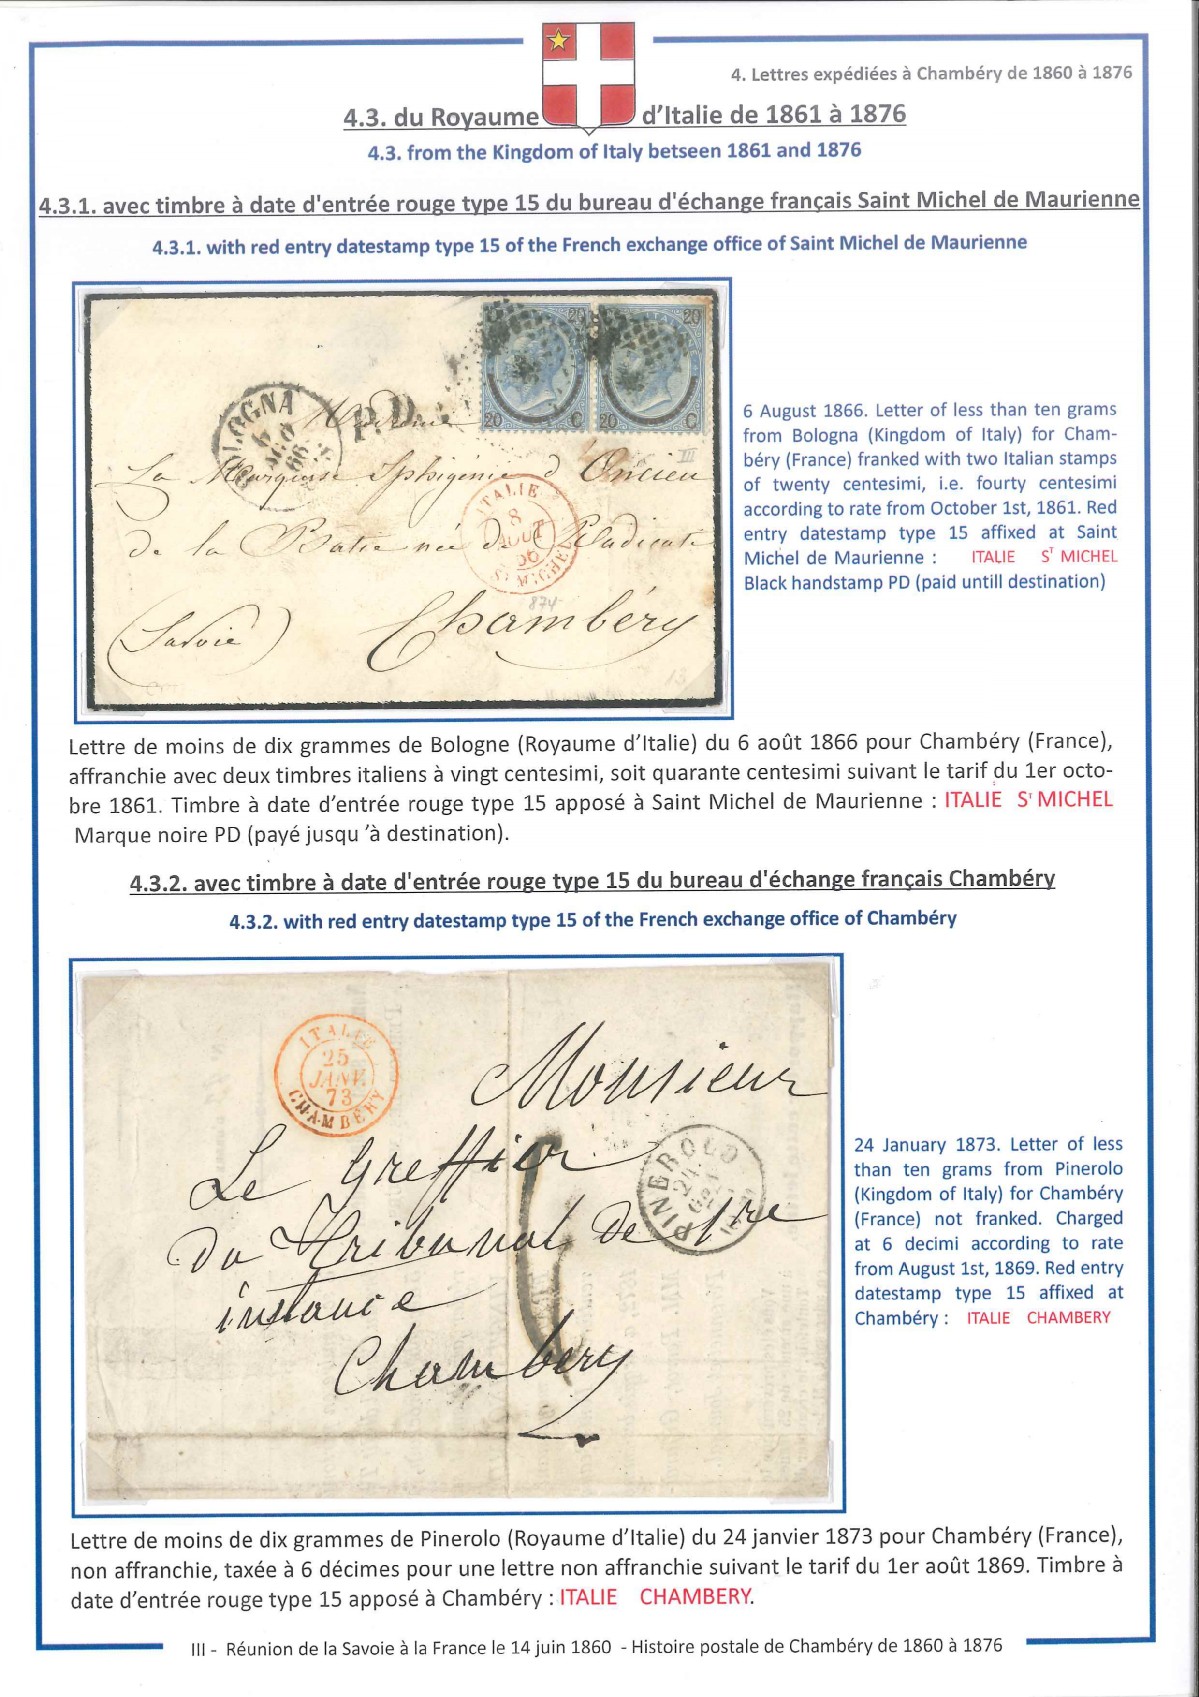 4. Lettres expédiées à Chambéry de 1860 à 1876
4.3. du Royaume d’Italie de 1861 à 1876
4.3. from the Kingdom of Italy betseen 1861 and 1876
4.3.1. avec timbre à date d'entrée rouge type 15 du bureau d'échange français Saint Michel de Maurienne
4.3.1. with red entry datestamp type 15 of the French exchange office of Saint Michel de Maurienne
20 20
20 C 20 C
BOLOGNA
6
AGO
66
P.D.
Madame
La Marquise Iphigénie d'Oncieu
de la Batie née de
(Savoie) Chambéry
ITALIE
8
AOUT
66
ST MICHEL
874
III
13
6 August 1866. Letter of less than ten grams
from Bologna (Kingdom of Italy) for Cham-
béry (France) franked with two Italian stamps
of twenty centesimi, i.e. fourty centesimi
according to rate from October 1st, 1861. Red
entry datestamp type 15 affixed at Saint
Michel de Maurienne : ITALIE ST MICHEL
Black handstamp PD (paid untill destination)
Lettre de moins de dix grammes de Bologne (Royaume d’Italie) du 6 août 1866 pour Chambéry (France),
affranchie avec deux timbres italiens à vingt centesimi, soit quarante centesimi suivant le tarif du 1er octo-
bre 1861. Timbre à date d’entrée rouge type 15 apposé à Saint Michel de Maurienne : ITALIE Sr MICHEL
Marque noire PD (payé jusqu ’à destination).
4.3.2. avec timbre à date d'entrée rouge type 15 du bureau d'échange français Chambéry
4.3.2. with red entry datestamp type 15 of the French exchange office of Chambéry
ITALIE
25
JANV.
73
CHAMBÉRY
Monsieur
Le Greffier
du Tribunal de 1re
instance
Chambery
6
PINEROLO
24
GEN
24 January 1873. Letter of less
than ten grams from Pinerolo
(Kingdom of Italy) for Chambéry
(France) not franked. Charged
at 6 decimi according to rate
from August 1st, 1869. Red entry
datestamp type 15 affixed at
Chambéry : ITALIE CHAMBERY
Lettre de moins de dix grammes de Pinerolo (Royaume d’Italie) du 24 janvier 1873 pour Chambéry (France),
non affranchie, taxée à 6 décimes pour une lettre non affranchie suivant le tarif du 1er août 1869. Timbre à
date d’entrée rouge type 15 apposé à Chambéry : ITALIE CHAMBERY.
III - Réunion de la Savoie à la France le 14 juin 1860 - Histoire postale de Chambéry de 1860 à 1876